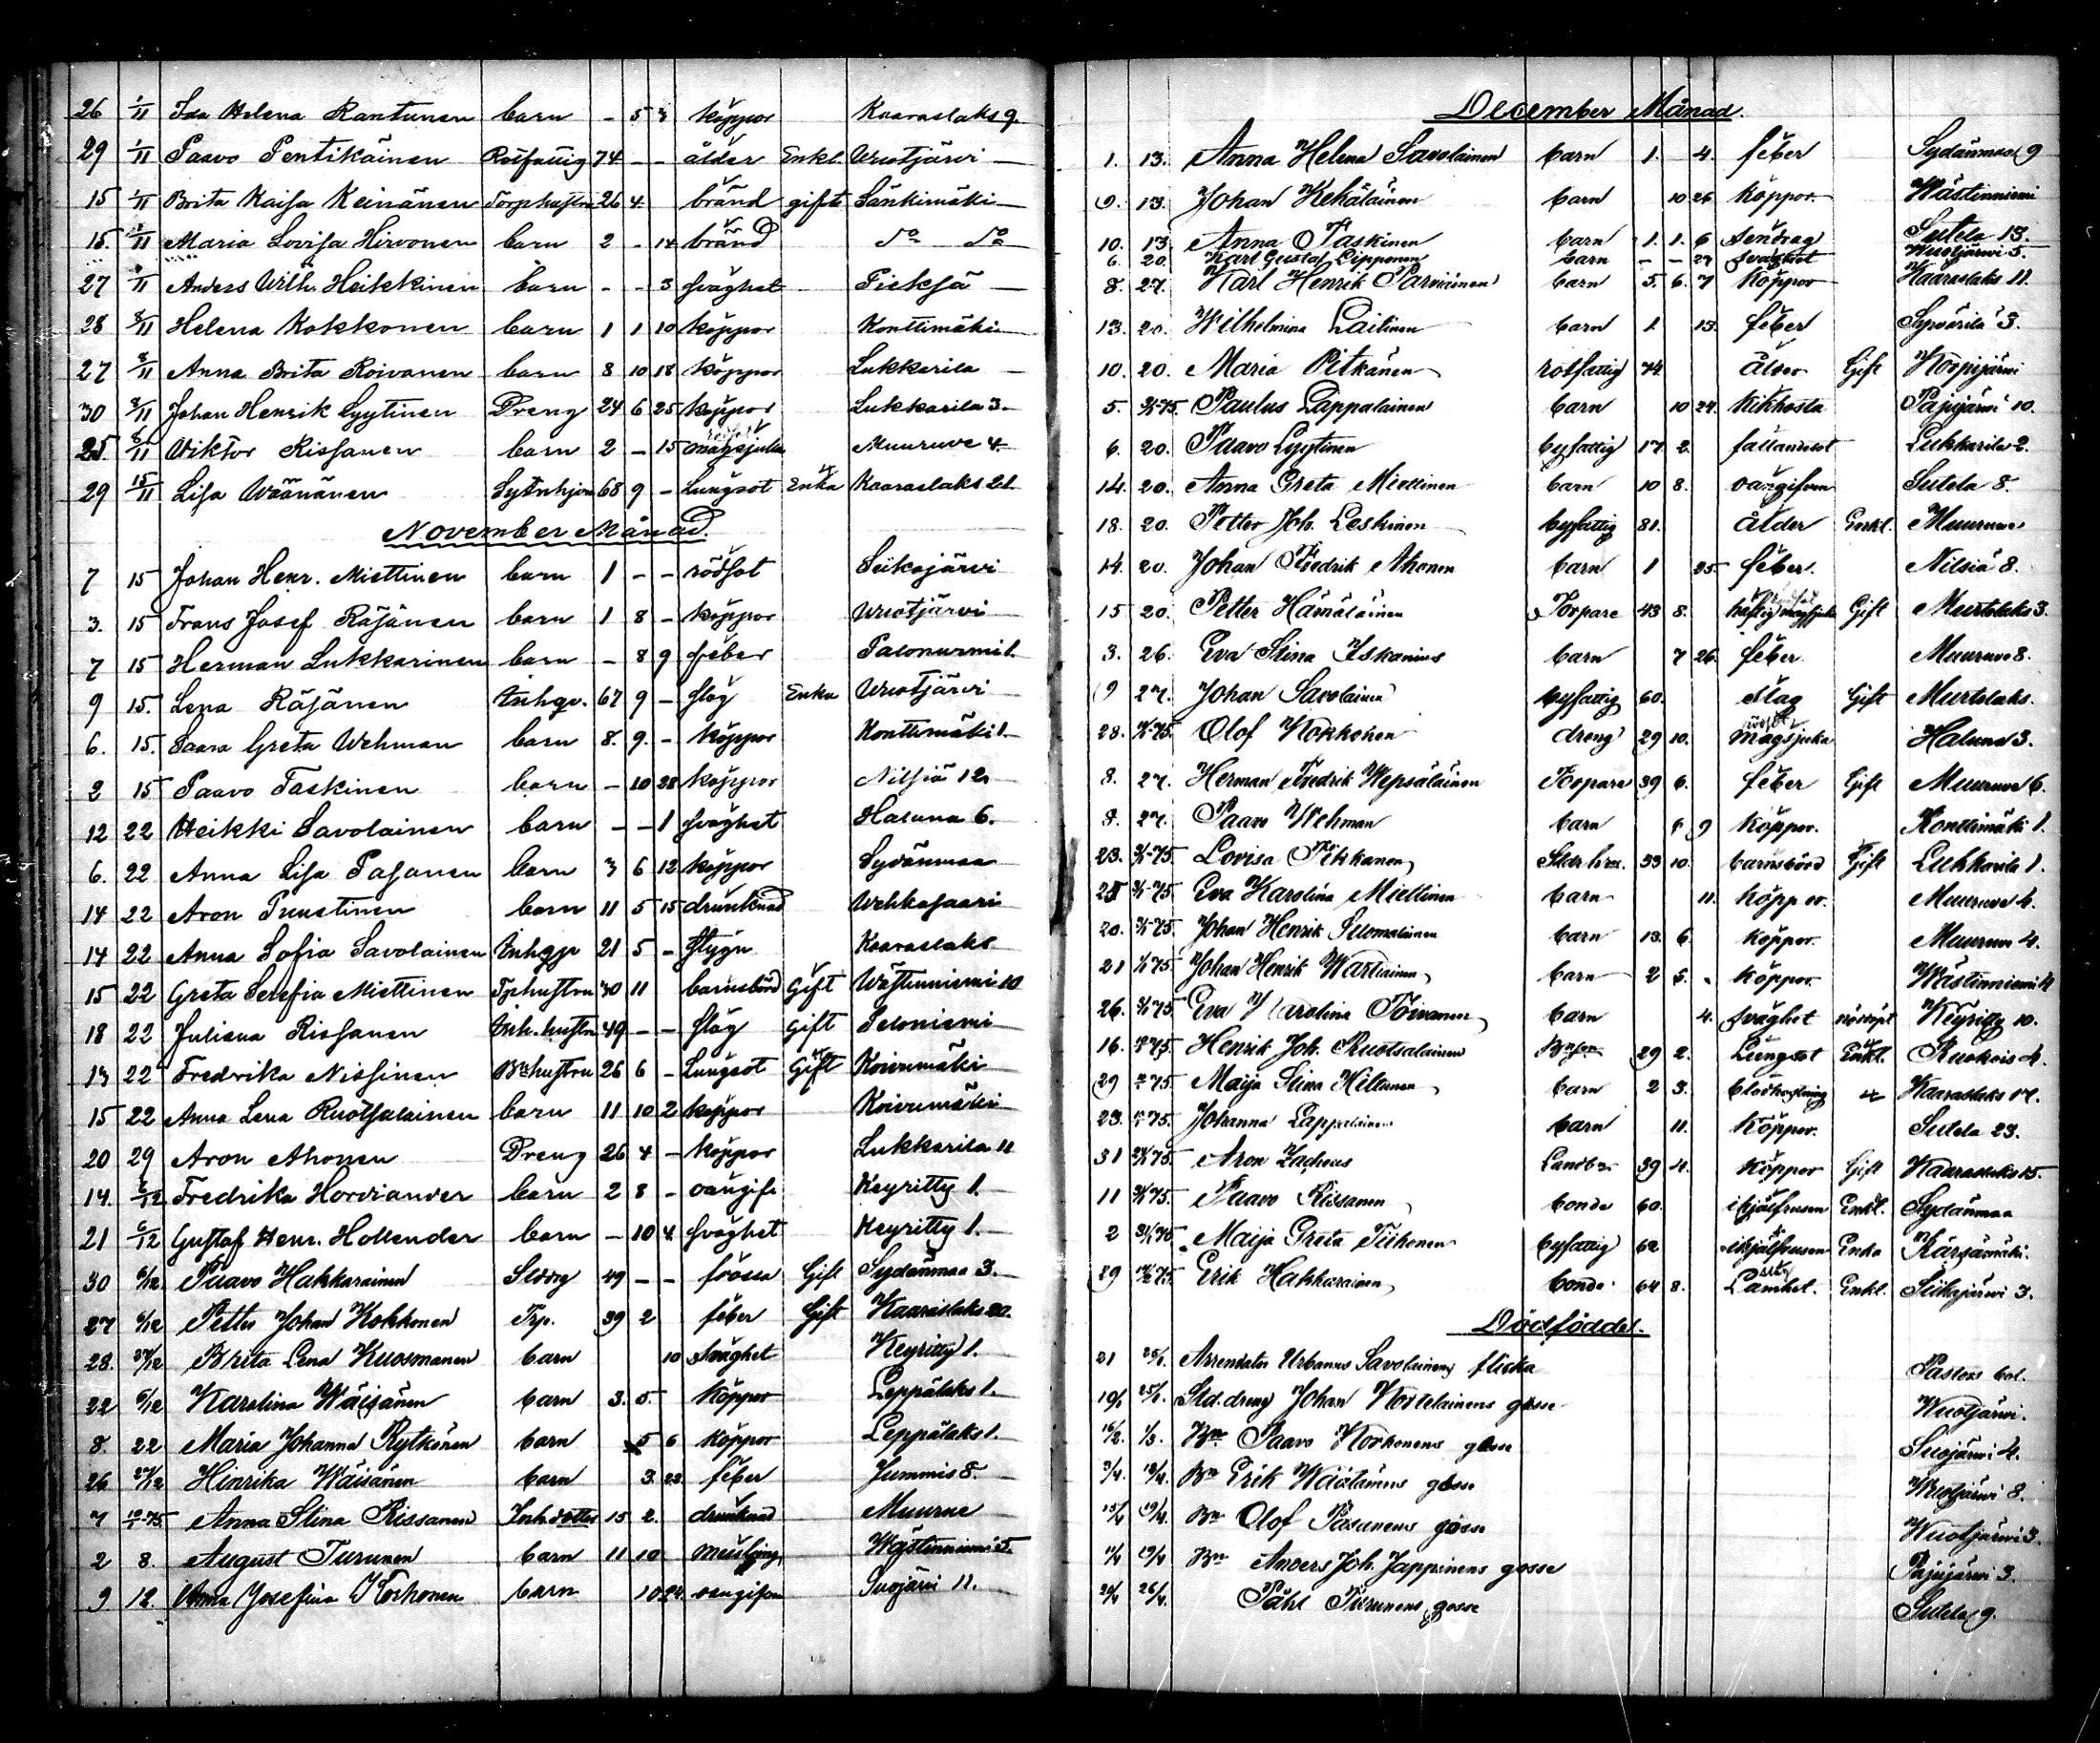 26 1/11 Ida Helena Rantunen barn - 5 3 koppor Kaaraslaks 9.
29 1/11 Paavo Pentikäinen Rotfattig 74 - - ålder Enkl. Wuotjärvi
15 1/11 Brita Kaisa Keinänen Torphustru 26 4. bränd gift Sänkimäki
15. 1/11 Maria Lovisa Hirvonen barn 2 - 14 bränd do do
27 1/11 Anders Wilh. Heikkinen barn - - 3 svaghet Pieksä
28 8/11 Helena Kokkonen barn 1 1 10 koppor Konttimäki
27 8/11 Anna Brita Roivanen barn 8 10 18 koppor Lukkarila
30 8/11 Johan Henrik Lyytinen Dreng 24 6 25 koppor Lukkarila 3.
25. 8/11 Viktor Rissanen barn 2 - 15 magsjuka Muuruve 4.
29 15/11 Lisa Väänänen 68 9 - Lungsot Enka Kaaraslaks 21.
November Månad.
7 15 Johan Henr. Miettinen barn 1 - - rödsot Siikajärvi
3. 15 Frans Josef Räsänen barn 1 8 - koppor Wuotjärvi
7 15 Herman Lukkarinen barn - 8 9 feber Palonurmi 1.
9 15. Lena Räsänen Inhqv. 67 9 - slag Enka Wuotjärvi
6. 15. Saara Greta Wehman barn 8. 9. - koppor Konttimäki 1.
2 15 Paavo Taskinen barn - 10 28 koppor Nilsiä 12.
12 22 Heikki Savolainen barn - - 1 svaghet Haluna 6.
6. 22 Anna Lisa Pasanen barn 3 6 12 koppor Sydänmaa
14 22 Aron Puustinen barn 11 5 15 drunknad Wehkasaari
14 22 Anna Sofia Savolainen Inhqp 21 5 - Kaaraslaks
15 22 Greta Serefia Miettinen Tphustru 30 11 barnsbörd Gift Wästinniemi 10
18 22 Juliana Rissanen Inh.hustru 49 - - slag Gift Seloniemi
13 22 Fredrika Nissinen Bhustru 26 6 - Lungsot Gift Koivumäki
15 22 Anna Lena Ruotsalainen barn 11 10 2 koppor Koivumäki
20 29 Aron Ahonen Dreng 26 4 - koppor Lukkarila 11
14. 6/12 Fredrika Hoviander barn 2 8 - oangif. Keyritty 1.
21 6/12 Gustaf Henr. Hollender barn - 10 4. svaghet Keyritty 1.
30 6/12 Paavo Hakkarainen Slddrg 49 - - frossa Gift Sydänmaa 3.
27 6/12 Petter Johan Kokkonen Trp. 39 2 feber Gift Kaaraslaks 20.
28. 27/12 Brita Lena Kuosmanen barn 10 svaghet Keyritty 1.
22 6/12 Karolina Wäisänen barn 3. 5. koppor Leppälaks 1.
8. 22 Maria Johanna Rytkönen barn 5 6 koppor Leppälaks 1.
26 27/12 Hinrika Wäisänen barn 3. 22. feber Jummis 8.
7 10/1-75. Anna Stina Rissanen Inh.dotter 15 2. drunknad Muurue
2 8. August Turunen barn 11 10 Wästinniemi 5.
9 12. Anna Josefina Korhonen barn 10 24. oangifven Suojärvi 11.
December Månad.
1. 13. Anna Helena Savolainen barn 1. 4. feber Sydänmaa 9
9. 13. Johan Kekäläinen barn 10 26 koppor. Wästinniemi
10. 13. Anna Taskinen barn 1. 1. 6 sendrag Sutela 13.
6. 20. Karl Gustaf Lipponen barn - - 27 svaghet Wuotjärvi 5.
8. 27. Karl Henrik Parviainen barn 5. 6. 7 koppor Kaaraslaks 11.
13. 20. Wilhelmina Laitinen barn 1. 13. feber Syvärilä 3.
10. 20. Maria Pitkänen rotfattig 74. ålder Gift Korpijärvi
5. Paulus Lappalainen barn 10 24. kikhosta Pajujärvi 10.
6. 20. Paavo Lyytinen byfattig 17 2. fallandesot Lukkarila 2.
14. 20. Anna Greta Miettinen barn 10 8. oangifven Sutela 8.
18. 20. Petter Joh. Leskinen byfattig 81. ålder Enkl. Muuruve
14. 20. Johan Fredrik Ahonen barn 1 25. feber. Nilsiä 8.
15 20. Petter Hämäläinen Torpare 43 8. häftig magsjuka Gift Murtolaks 3.
3. 26. Eva Stina Iskanius barn 7 26. feber. Muuruve 8.
9 27. Johan Savolainen byfattig 60. slag Gift Murtolaks.
28. Olof Kokkonen dreng 29 10. rödsot magsjuka Haluna 3.
8. 27. Herman Fredrik Wepsäläinen Torpare 39 6. feber Gift Muuruve 6.
8. 27. Paavo Wehman barn 6 9 koppor. Konttimäki 1.
23. Lovisa Tikkanen 33 10. barnsbörd Gift Lukkarila 1.
25 Eva Karolina Miettinen barn 11. koppor. Muuruve 4.
20. Johan Henrik Suomalainen barn 13. 6. koppor. Muuruve 4.
21 Johan Henrik Wartiainen barn 2 5. koppor. Wästinniemi 4
26. Eva Karolina Toivanen barn 4. svaghet nöddöpt Keyritty 10.
16. Henrik Joh. Ruotsalainen 29 2. Lungsot Enkl. Ruokois 4.
29 Maija Stina Hiltunen barn 2 3. Kaaraslaks 17.
23. Johanna Lappalainen barn 11. koppor. Sutela 23.
31 Aron Zacheus Landbo 39 4. koppor Gift Kaaraslaks 15.
11 Paavo Rissanen bonde 60. ihjälfrusen Enkl. Sydänmaa
2 Maija Greta Tiihonen byfattig 62 ihjälfrusen Enka Kärsämäki.
29 Erik Hakkarainen bonde 64 8. Lamhet. Enkl. Siikajärvi 3.
Dödfödde.
21 25/1. Arrendator Urbanus Savolainens flicka Pastors bol.
19/1 25/1. Sld.dreng Johan Kortelainens gosse Wuotjärvi.
16/2. 1/3. Bn Paavo Korhonens gosse Suojärvi 4.
3/4. 12/4. Bn Erik Määttäinens gosse Wuotjärvi 8.
15/4 19/4. Bn Olof Pasanens gosse Wuotjärvi 3.
11/4 19/4 Bn Anders Joh. Jappinens gosse Pajujärvi 3.
20/4 26/4. Påhl Turunens gosse Sutela 9.